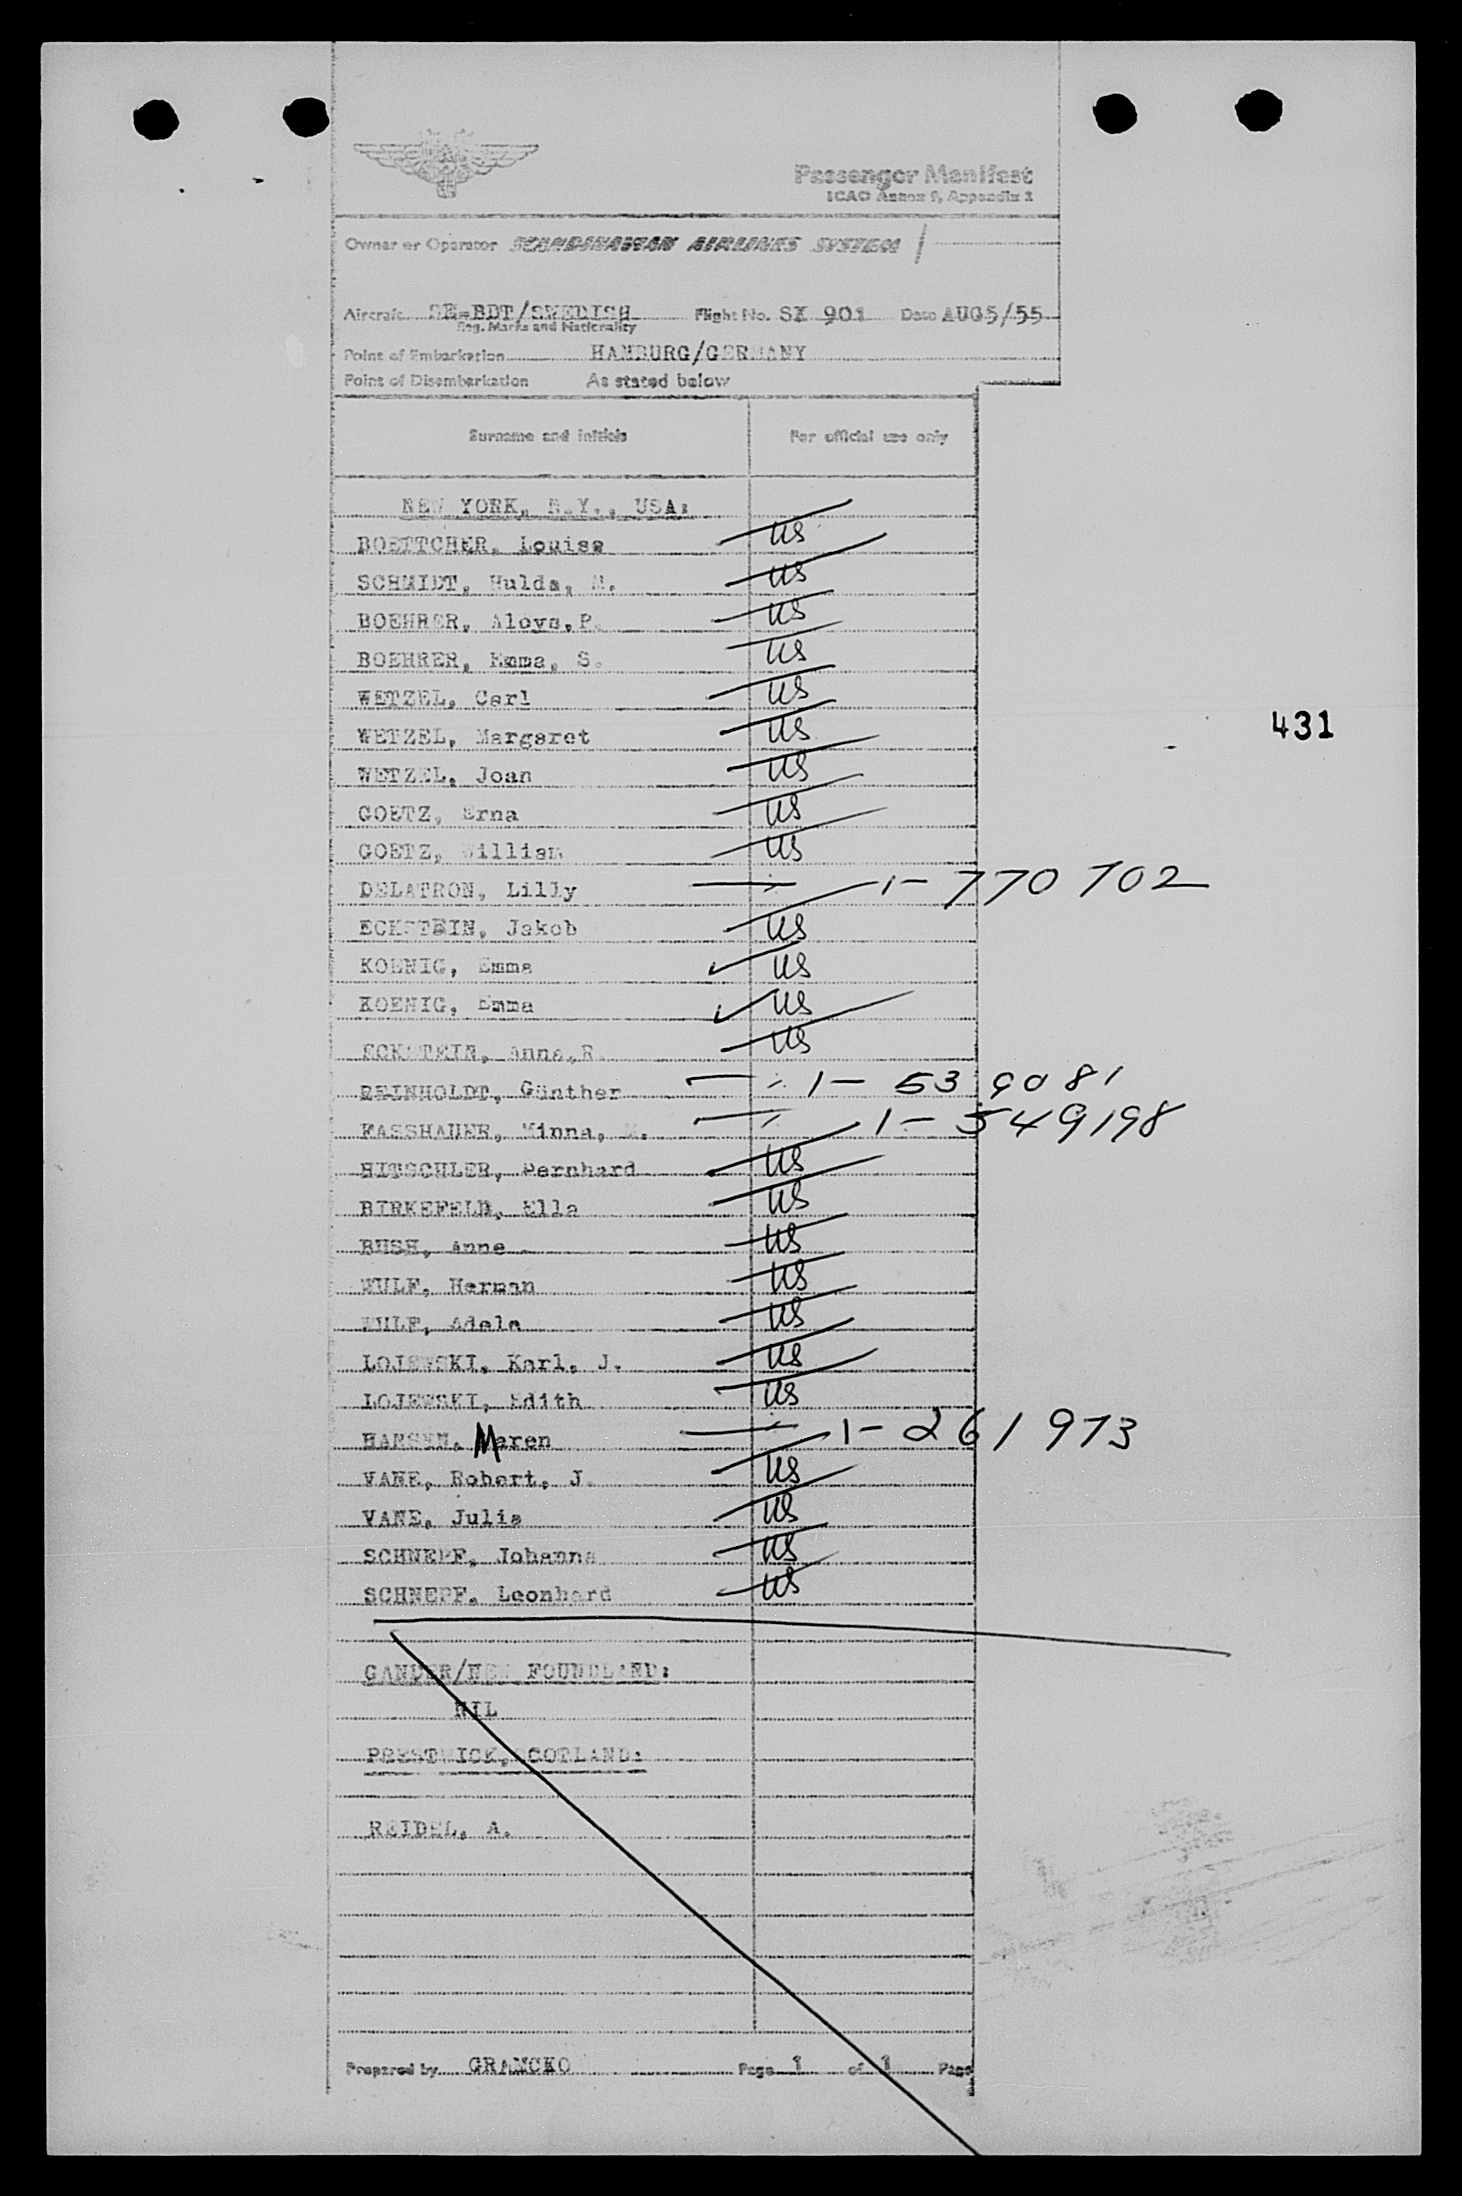 Passenger Manifest
ICAO Annex 9, Appendix 2
Owner or Operator SCANDINAVIAN AIRLINES SYSTEM /
Aircraft SE-BDT/SWEDISH Flight No. SK 901 Date AUG5/55
Reg. Marks and Nationality
Point of Embarkation HAMBURG/GERMANY
Point of Disembarkation As stated below
Surname and initials For official use only
NEW YORK, N.Y., USA:
BOETTCHER, Louise US
SCHMIDT, Hulda, M. US
BOEHRER, Aloys, P. US
BOEHRER, Emma, S. US
WETZEL, Carl US
WETZEL, Margaret US
431
WETZEL, Joan US
GOETZ, Erna US
GOETZ, William US
DELATRON, Lilly 1- 770 702
ECKSTEIN, Jakob US
KOENIG, Emma US
KOENIG, Emma US
ECKSTEIN, Anna, R. US
REINHOLDT, Günther 1- 539081
KASSHAUER, Minna, M. 1- 549198
HITSCHLER, Bernhard US
BIRKEFELD, Ella US
BUSH, Anne US
WULF, Herman US
WULF, Adele US
LOJEWSKI, Karl, J. US
LOJEWSKI, Edith US
HANSEN, Maren 1- 261 973
VANE, Robert, J. US
VANE, Julia US
SCHNEPF, Johanna US
SCHNEPF, Leonhard US
GANDER/NEW FOUNDLAND:
NIL
PRESTWICK, SCOTLAND:
REIDEL, A.
Prepared by GRAMCKO Page 1 of 1 Page